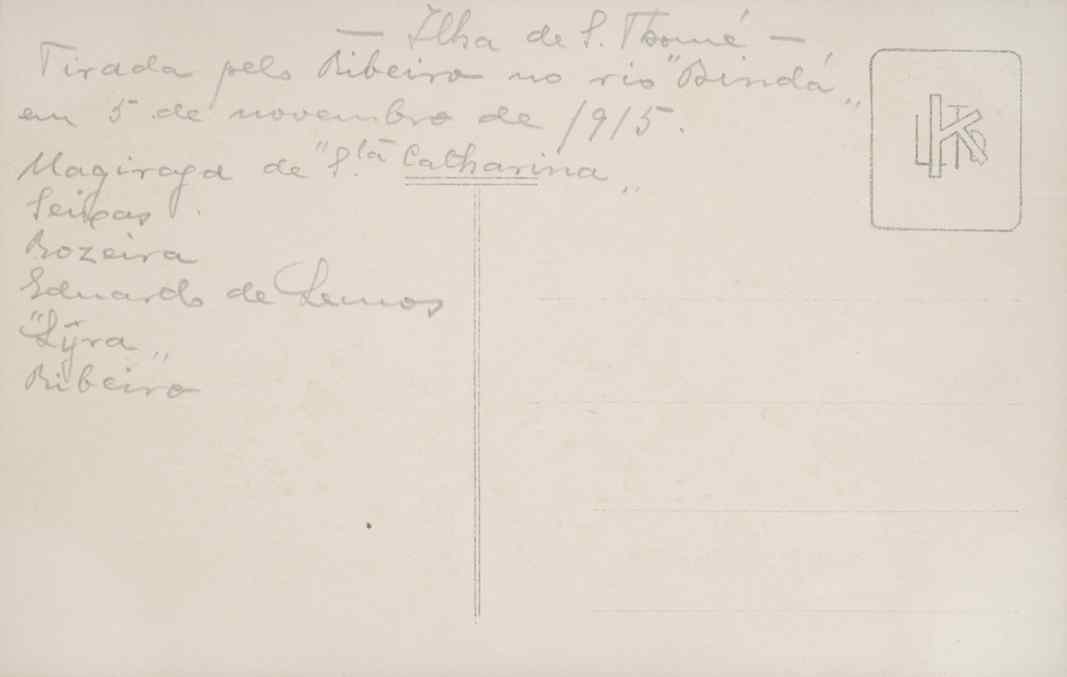 — Ilha de S. Thomé —
Tirada pelo Ribeiro no rio "Bindá"
em 5 de novembro de 1915.
de "S.ta Catharina"
Seixas
Rozeira
Eduardo de Lemos
"Lÿra"
Ribeiro